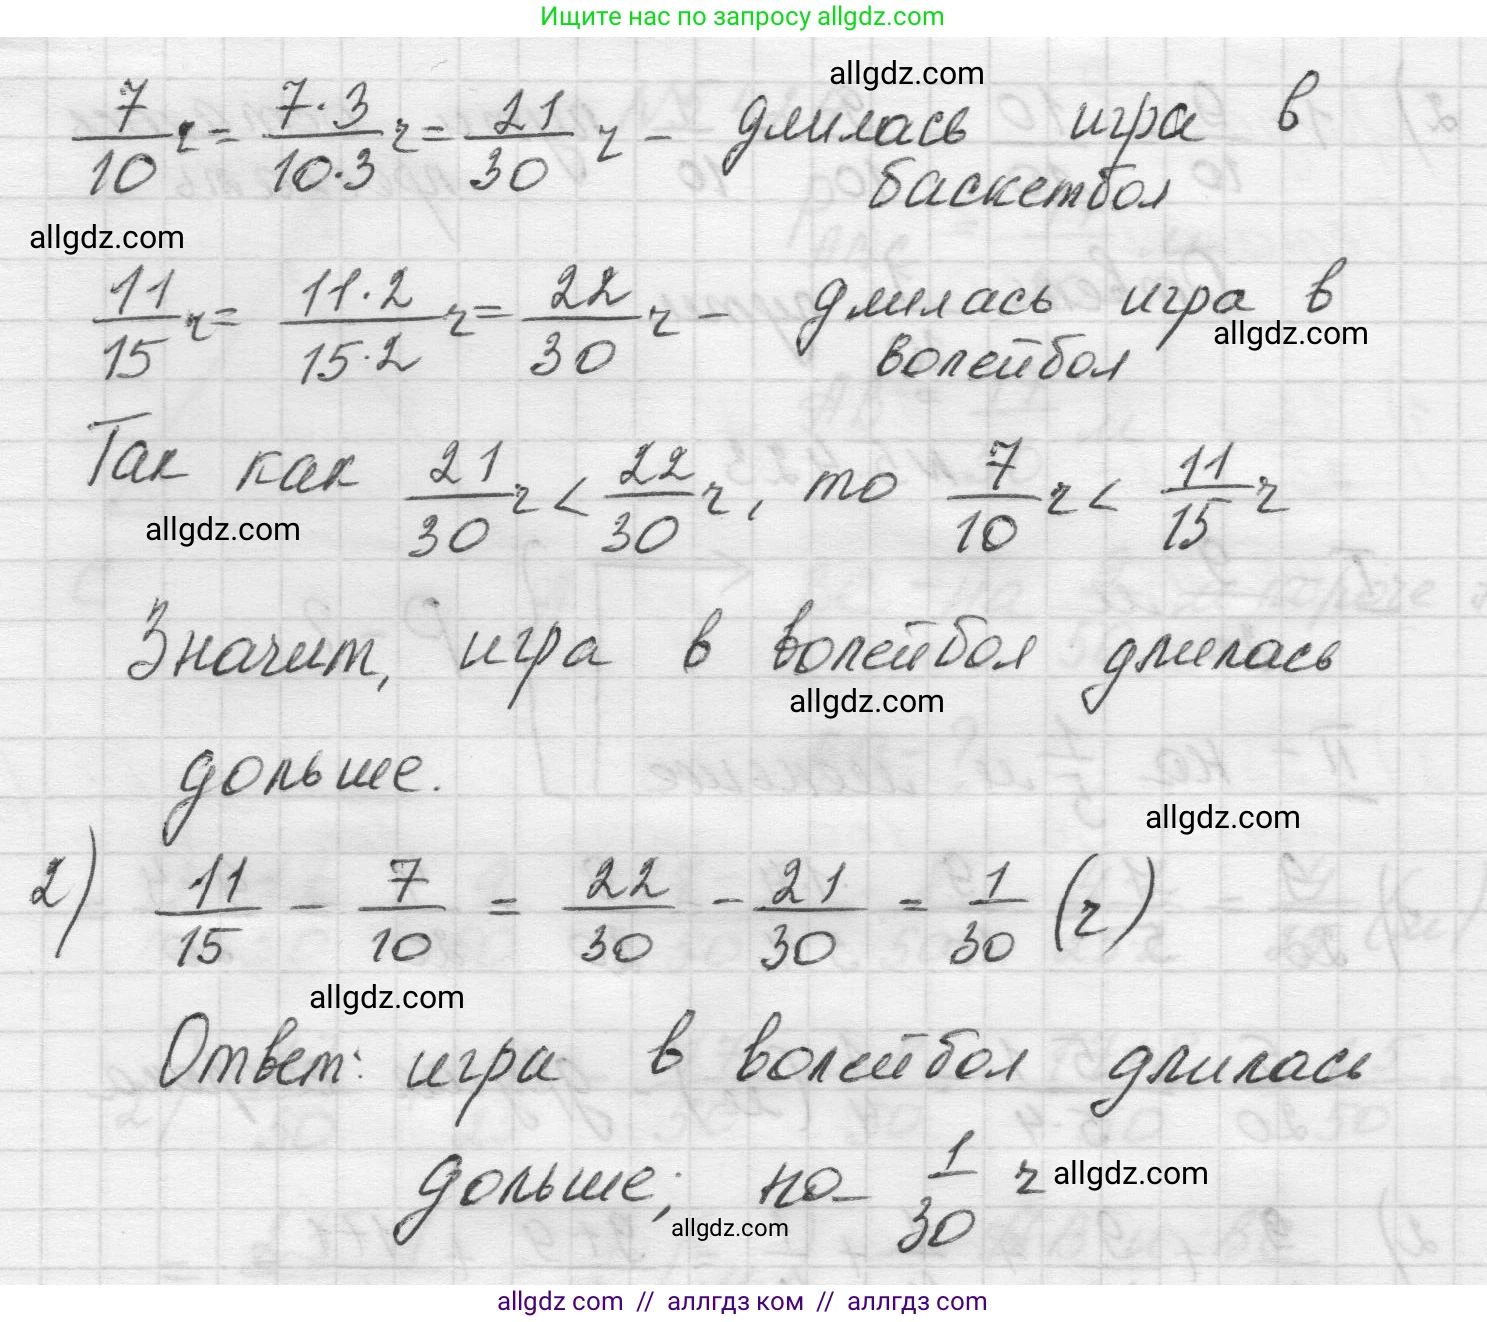 Ищите нас по запросу allgdz.com
allgdz.com
7/10 ч = 7·3/10·3 ч = 21/30 ч - длилась игра в
баскетбол
allgdz.com
11/15 ч = 11·2/15·2 ч = 22/30 ч - длилась игра в
allgdz.com
волейбол
Так как 21/30 ч < 22/30 ч, то 7/10 ч < 11/15 ч
allgdz.com
Значит, игра в волейбол длилась
allgdz.com
дольше.
allgdz.com
2) 11/15 - 7/10 = 22/30 - 21/30 = 1/30 (ч)
allgdz.com
Ответ: игра в волейбол длилась
дольше; на 1/30 ч
allgdz.com
allgdz.com
allgdz com // аллгдз ком // аллгдз com